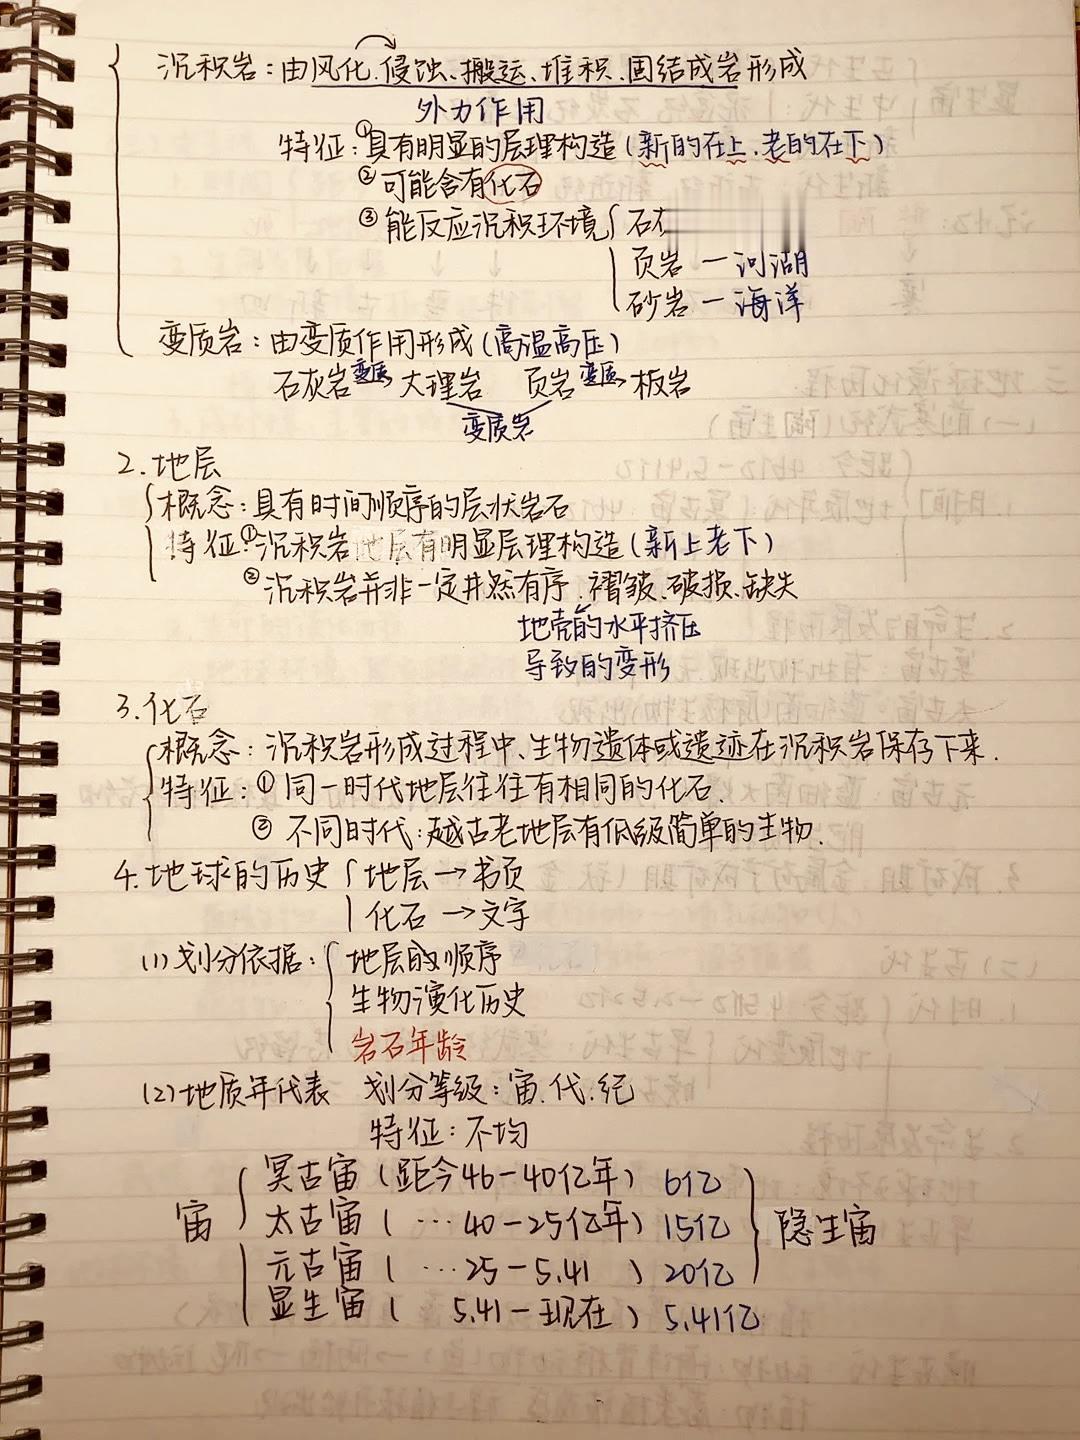 沉积岩：由风化、侵蚀、搬运、堆积、固结成岩形成
外力作用
特征：①具有明显的层理构造（新的在上、老的在下）
②可能含有化石
③能反应沉积环境 石
页岩—河湖
砂岩—海洋
变质岩：由变质作用形成（高温高压）
石灰岩 变质→ 大理岩 页岩 变质→ 板岩
变质岩
2.地层
概念：具有时间顺序的层状岩石
特征：①沉积岩地层有明显层理构造（新上老下）
②沉积岩并非一定井然有序、褶皱、破损、缺失
地壳的水平挤压
导致的变形
3.化石
概念：沉积岩形成过程中、生物遗体或遗迹在沉积岩保存下来.
特征：①同一时代地层往往有相同的化石.
③不同时代：越古老地层有低级简单的生物.
4.地球的历史 地层→书页
化石→文字
(1)划分依据：地层的顺序
生物演化历史
岩石年龄
(2)地质年代表 划分等级：宙.代.纪
特征：不均
冥古宙（距今46-40亿年）6亿
宙 太古宙（…40-25亿年）15亿 隐生宙
元古宙（…25-5.41）20亿
显生宙（5.41-现在）5.41亿